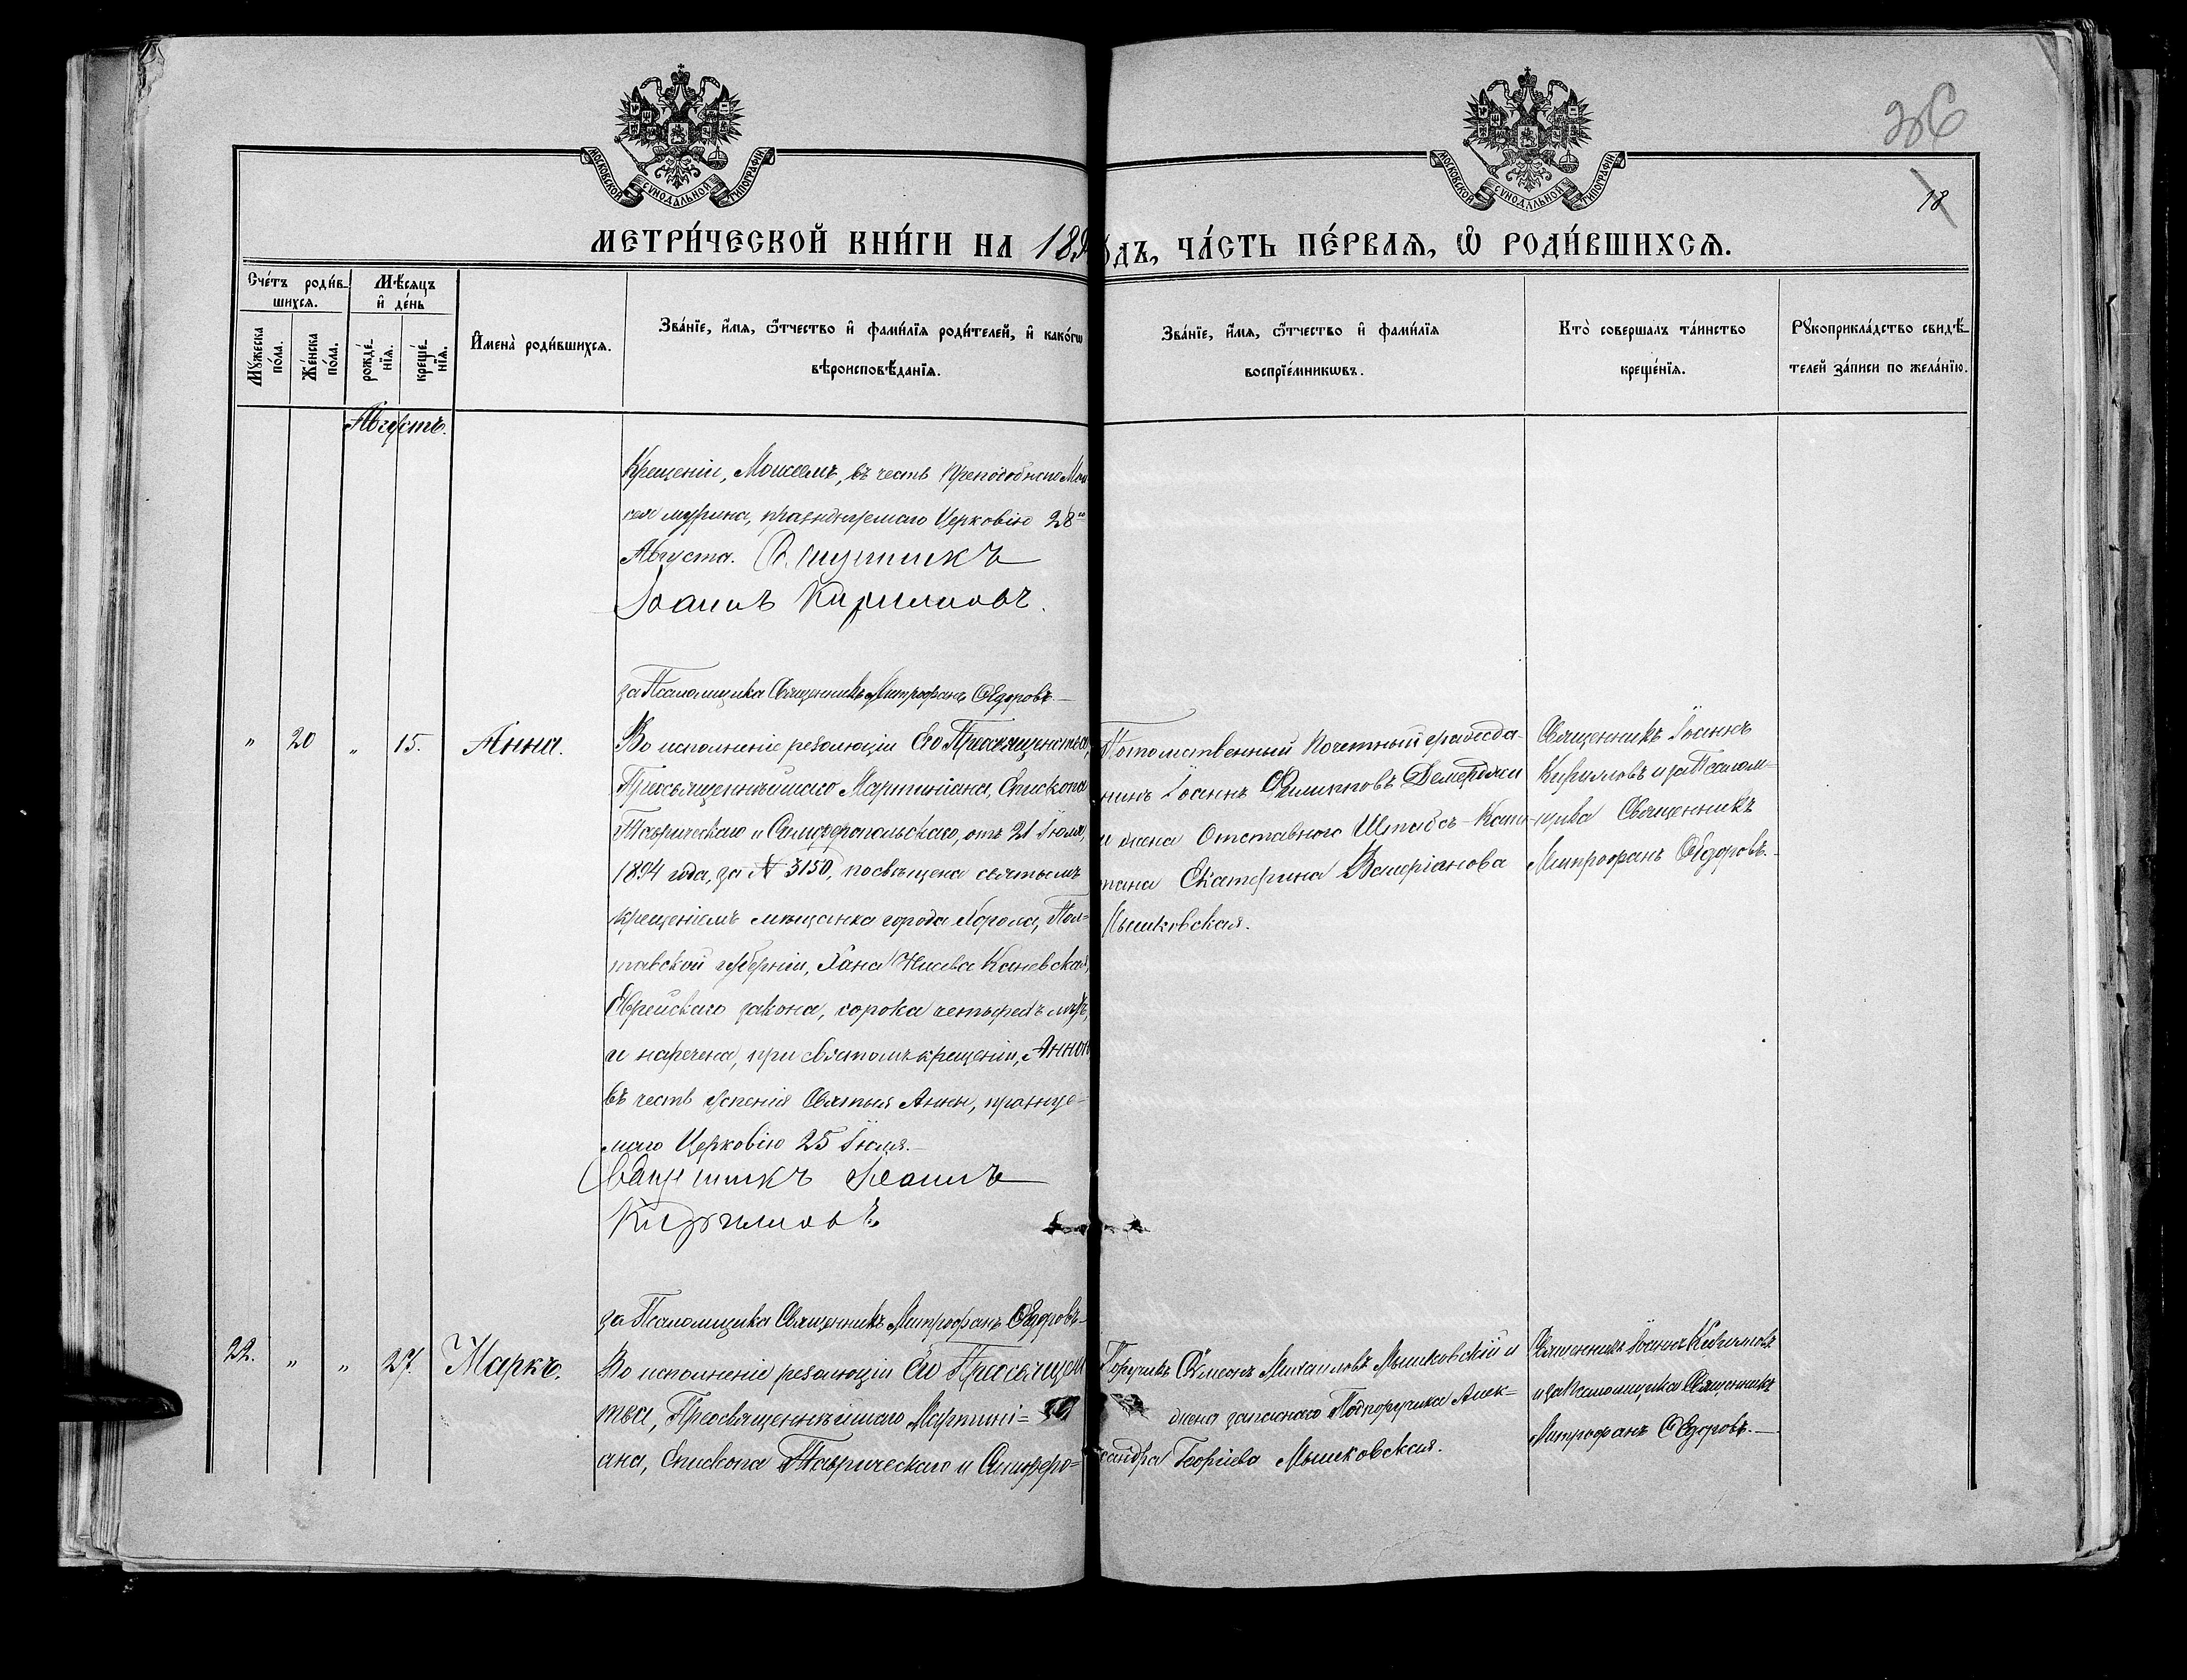 36
18
МОСКОВСКОЙ СѴНОДАЛЬНОЙ ТИПОГРАФІИ
МОСКОВСКОЙ СѴНОДАЛЬНОЙ ТИПОГРАФІИ
МЕТРИ́ЧЕСКОЙ КНИ́ГИ НА 189
ОДЪ, ЧА́СТЬ ПЕ́РВАѦ, Ѽ РОДИ́ВШИХСѦ.
Сче́тъ роди́в-
шихсѧ.
Мꙋжеска по́ла.
Же́нска по́ла.
Мѣсѧцъ
и҆ де́нь
рожде́-нїѧ.
креще́-нїѧ.
И҆мена̀ роди́вшихсѧ.
Зва́нїе, и҆́мѧ, ѻ҆́тчество и҆ фами́лїѧ роди́телей, и҆ како́гѡ
вѣроисповѣ́данїѧ.
Зва́нїе, и҆́мѧ, ѻ҆́тчество и҆ фами́лїѧ
воспрїе́мникѡвъ.
Кто̀ соверша́лъ та́инство
креще́нїѧ.
Рꙋкоприкла́дство свидѣ́-
телей за́писи по жела́нїю.
Августъ.
Крещеніи, Моисеемъ, въ честь Преподобнаго Мои
сея мурина, празднуемаго Церковію 28го
Августа. Священникъ
Іоаннъ Кирилловъ.
за Псаломщика Священникъ Митрофанъ Ѳедоровъ.
" 20 " 15. Анна.
Во исполненіе резолюціи Его Преосвященства,
Преосвященнѣйшаго Мартиніана, Епископа
Таврическаго и Симферопольскаго, отъ 21 Іюля,
1894 года, за № 3150, посвящена святымъ
крещеніемъ мѣщанка города Хорола, Пол-
тавской губерніи, Хана Каневская,
Еврейскаго закона, сорока четырехъ лѣтъ,
и наречена, при святомъ крещеніи, Анной
въ честь успенія Святыя Анны, празнуе-
маго Церковію 25 Іюля.
Священникъ Іоаннъ
Кирилловъ.
за Псаломщика Священникъ Митрофанъ Ѳедоровъ
Потомственный почетный гражда-
нинъ Іоаннъ Филипповъ Демерджи
и жена Отставнаго Штабсъ-Капи-
тана Екатерина Валеріанова
Мышковская.
Священникъ Іоаннъ
Кирилловъ и за Псалом-
щика Священникъ
Митрофанъ Ѳедоровъ.
22. " " 27. Маркъ.
Во исполненіе резолюціи Его Преосвящен
тва, Преосвященнѣйшаго Мартині-
ана, Епископа Таврическаго и Симферо-
Поручикъ Симеонъ Михаиловъ Мышковскій и
жена запаснаго Подпоручика Алек-
сандра Георгіева Мышковская.
Священникъ Іоаннъ Кирилловъ
и за псаломщика Священникъ
Митрофанъ Ѳедоровъ.